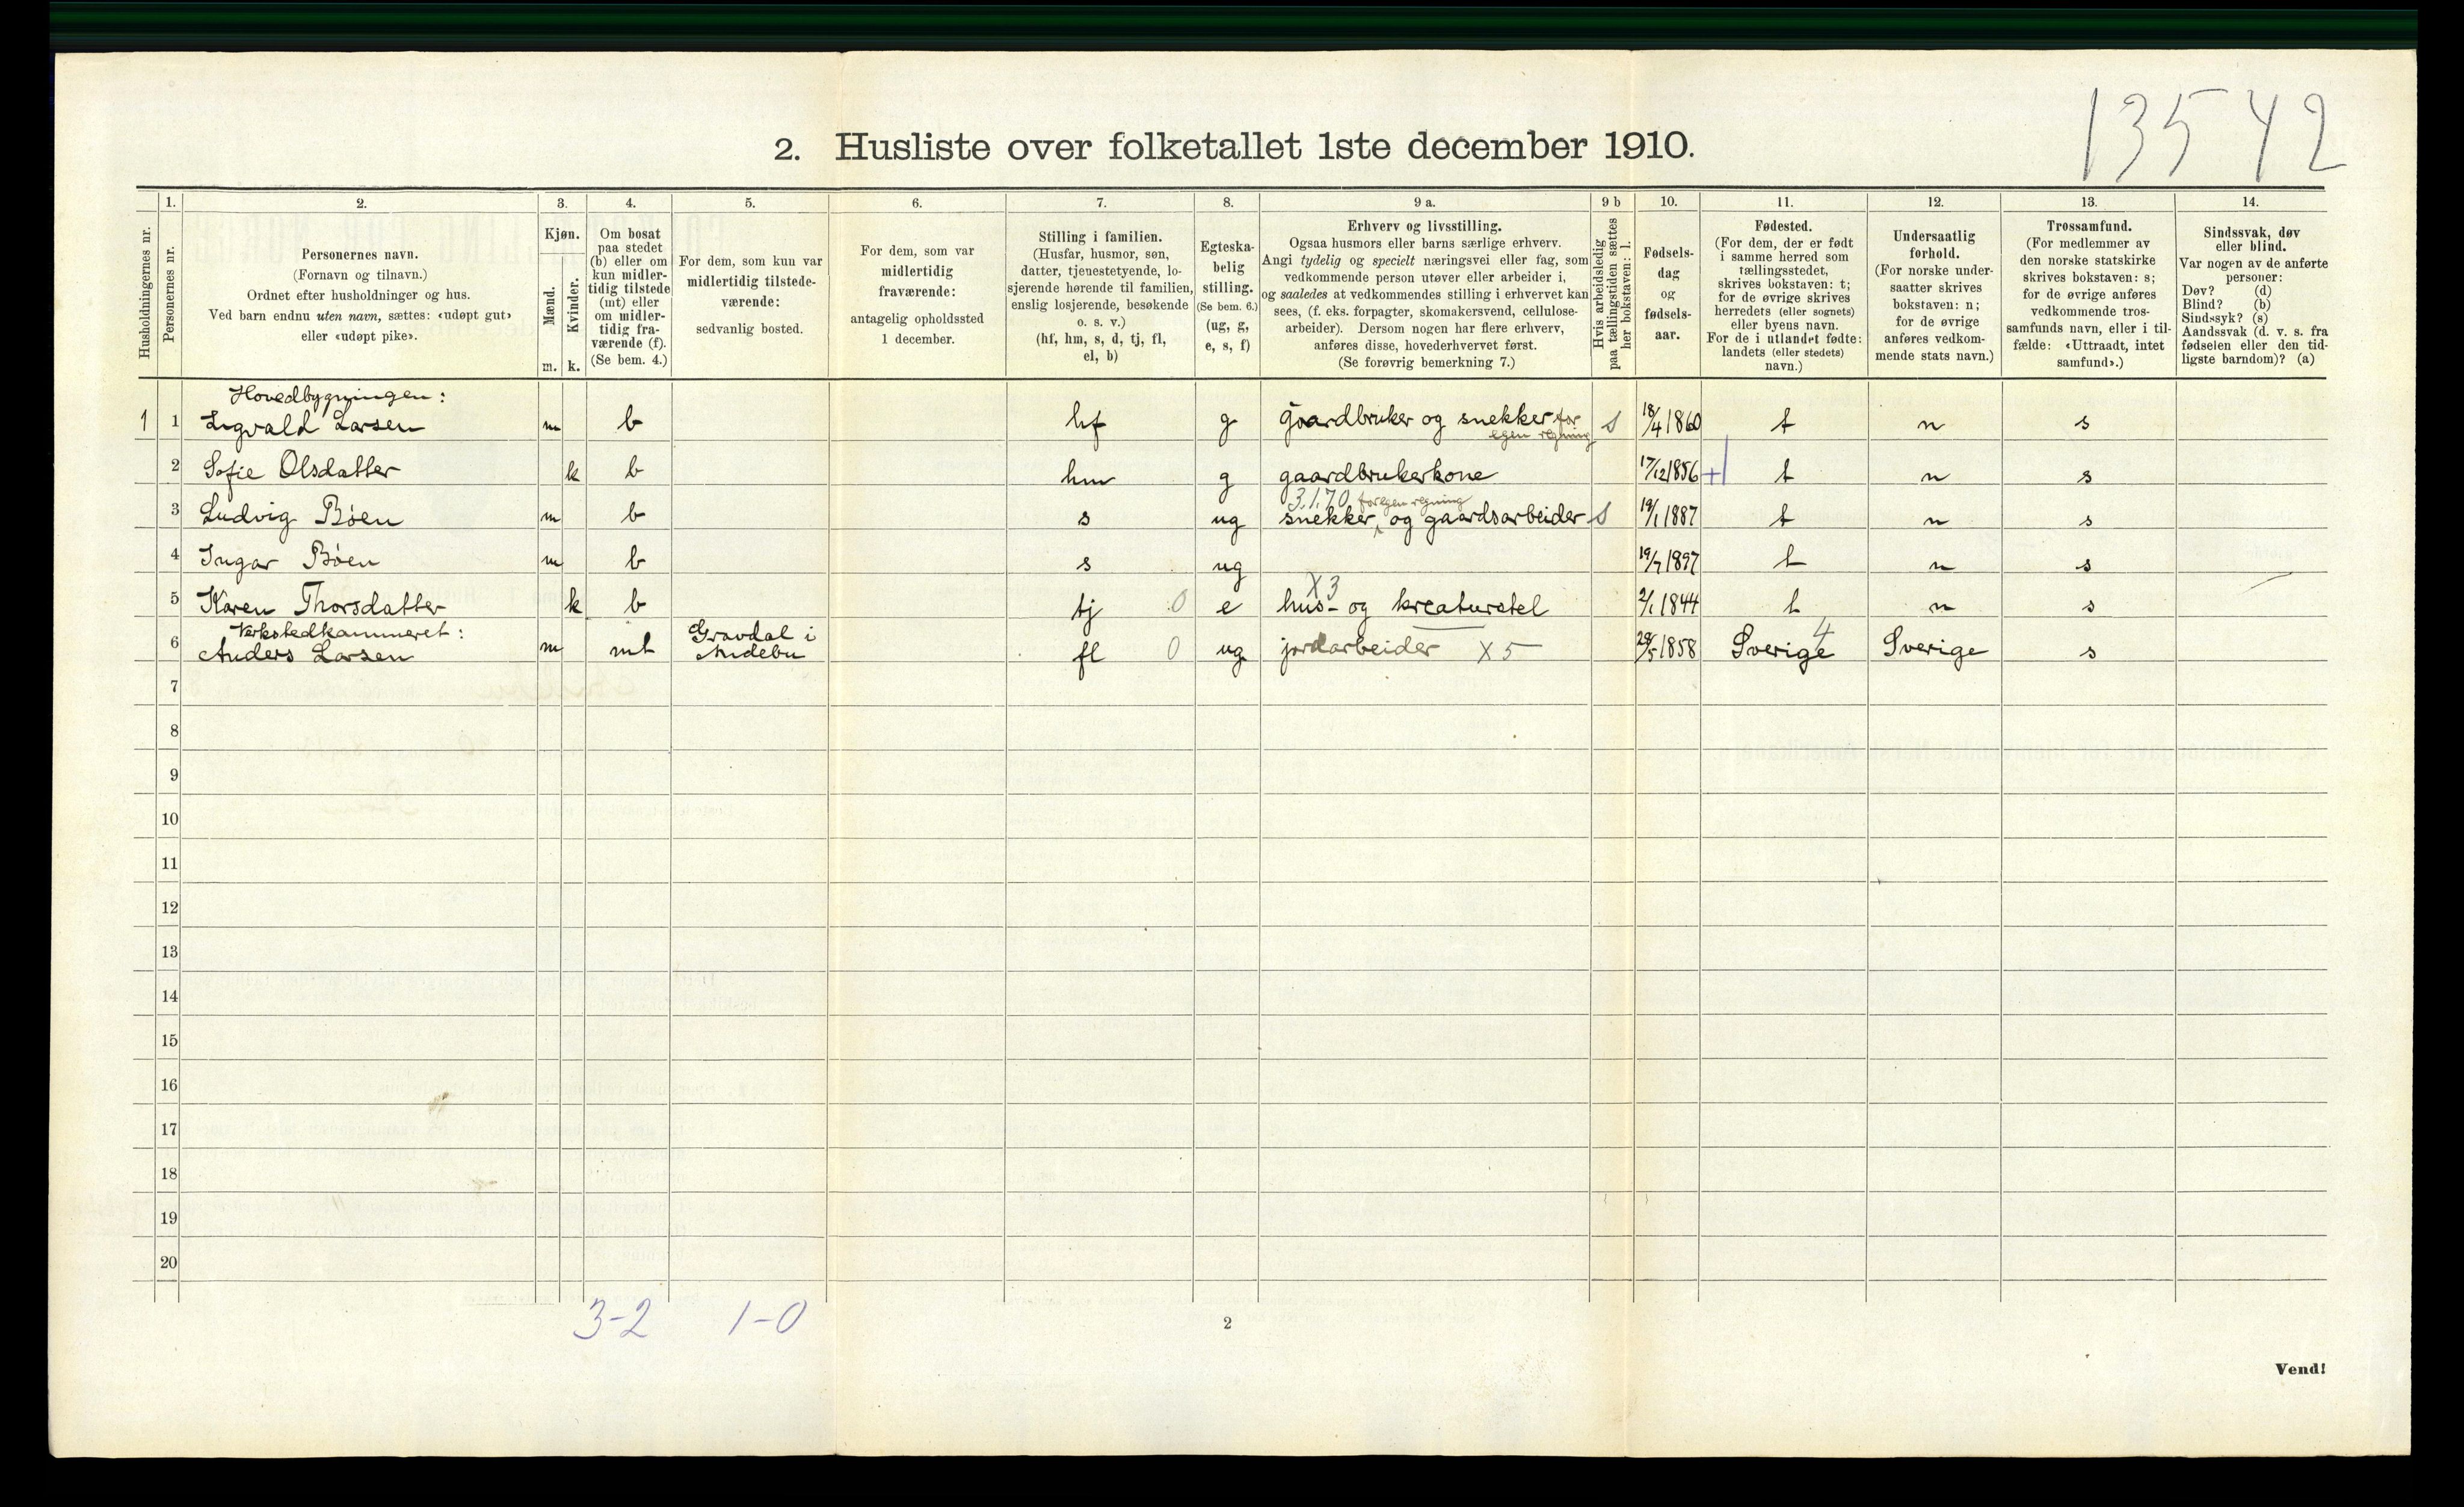 13542
2. Husliste over folketallet 1ste december 1910.
1. 2. 3. 4. 5. 6. 7. 8. 9 a. 9 b 10. 11. 12. 13. 14.
Husholdningernes nr.
Personernes nr.
Personernes navn.
(Fornavn og tilnavn.)
Ordnet efter husholdninger og hus.
Ved barn endnu uten navn, sættes: «udøpt gut»
eller «udøpt pike».
Kjøn.
Mænd.
Kvinder.
m. k.
Om bosat
paa stedet
(b) eller om
kun midler-
tidig tilstede
(mt) eller
om midler-
tidig fra-
værende (f).
(Se bem. 4.)
For dem, som kun var
midlertidig tilstede-
værende:
sedvanlig bosted.
For dem, som var
midlertidig
fraværende:
antagelig opholdssted
1 december.
Stilling i familien.
(Husfar, husmor, søn,
datter, tjenestetyende, lo-
sjerende hørende til familien,
enslig losjerende, besøkende
o. s. v.)
(hf, hm, s, d, tj, fl,
el, b)
Egteska-
belig
stilling.
(Se bem. 6.)
(ug, g,
e, s, f)
Erhverv og livsstilling.
Ogsaa husmors eller barns særlige erhverv.
Angi tydelig og specielt næringsvei eller fag, som
vedkommende person utøver eller arbeider i,
og saaledes at vedkommendes stilling i erhvervet kan
sees, (f. eks. forpagter, skomakersvend, cellulose-
arbeider). Dersom nogen har flere erhverv,
anføres disse, hovederhvervet først.
(Se forøvrig bemerkning 7.)
Hvis arbeidsledig
paa tællingstiden sættes
her bokstaven: l.
Fødsels-
dag
og
fødsels-
aar.
Fødested.
(For dem, der er født
i samme herred som
tællingsstedet,
skrives bokstaven: t;
for de øvrige skrives
herredets (eller sognets)
eller byens navn.
For de i utlandet fødte:
landets (eller stedets)
navn.)
Undersaatlig
forhold.
(For norske under-
saatter skrives
bokstaven: n;
for de øvrige
anføres vedkom-
mende stats navn.)
Trossamfund.
(For medlemmer av
den norske statskirke
skrives bokstaven: s;
for de øvrige anføres
vedkommende tros-
samfunds navn, eller i til-
fælde: «Uttraadt, intet
samfund».)
Sindssvak, døv
eller blind.
Var nogen av de anførte
personer:
Døv? (d)
Blind? (b)
Sindssyk? (s)
Aandssvak (d. v. s. fra
fødselen eller den tid-
ligste barndom)? (a)
Hovedbygningen:
1 1 Sigvald Larsen m b hf g gaardbruker og snekker for s 18/4 1860 t n s
egen regning
2 Sofie Olsdatter k b hm g gaardbrukerkone 17/12 1856 + t n s
3,1,70 for egen regning
3 Ludvig Bøen m b s ug snekker og gaardsarbeider s 19/1 1887 t n s
4 Ingar Bøen m b s ug 19/7 1897 t n s
X3
5 Karen Thorsdatter k b tj 0 e hus- og kreaturstel 2/1 1844 t n s
Verkstedkammeret: Gravdal i 4
6 Anders Larsen m mt Andebu fl 0 ug jordarbeider X5 1858 Sverige Sverige s
7
8
9
10
11
12
13
14
15
16
17
18
19
20
3-2 1-0
2
Vend!